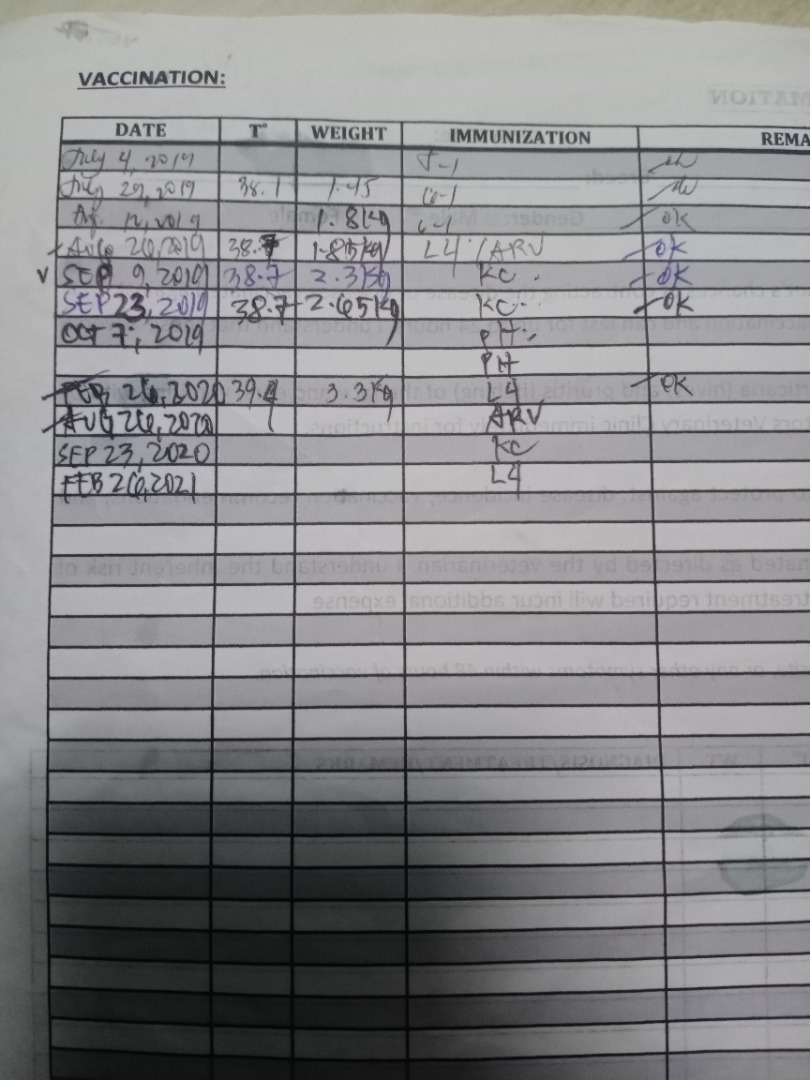 VACCINATION:
DATE T° WEIGHT IMMUNIZATION REMA
July 4, 2019 5-1
July 29, 2019 38.1 1.45 6-1
12, 2019 1.8Kg 6-1 OK
AUG 26, 2019 38.7 1.85Kg L4 /ARV OK
V SEP 9, 2019 38.7 2.3Kg KC OK
SEP 23, 2019 38.7 2.65Kg KC OK
OCT 7, 2019 PH
PH
FEB 26, 2020 39.4 3.3Kg L4 OK
AUG 26, 2020 ARV
SEP 23, 2020 KC
FEB 26, 2021 L4